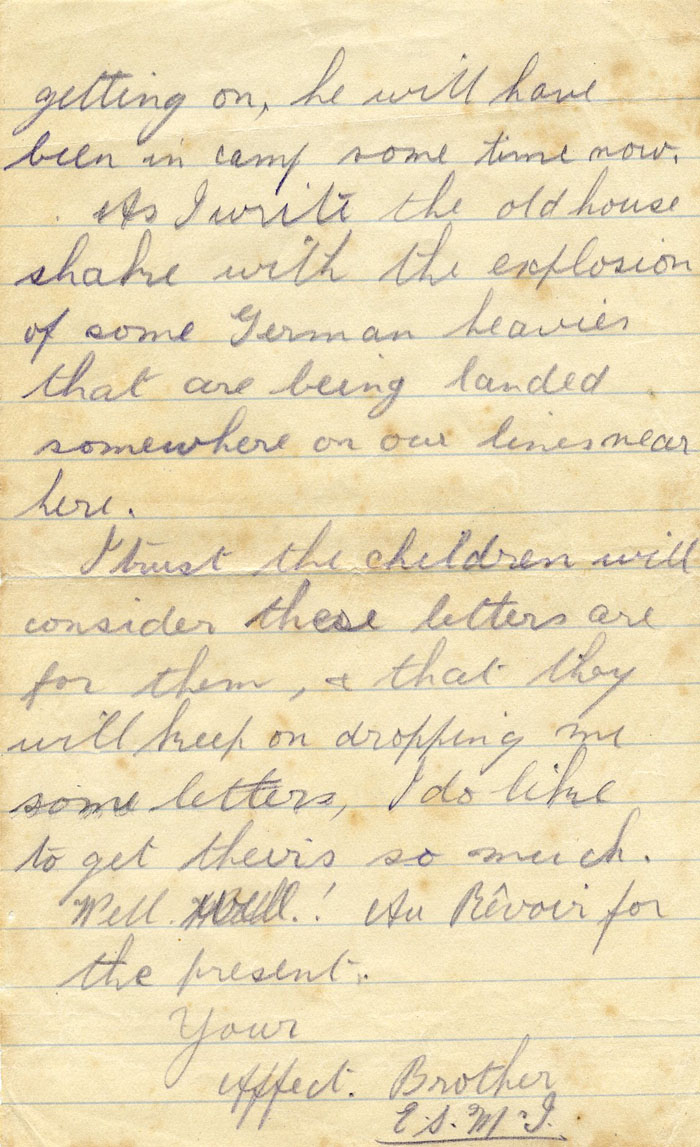 getting on, he will have
been in camp some time now.
As I write the old house
shake with the explosion
of some German heavies
that are being landed
somewhere on our lines near
here.
I trust the children will
consider these letters are
for them, & that they
will keep on dropping me
some letters, I do like
to get theirs so much.
Well. Well.! Au Rêvoir for
the present.
Your
Affect. Brother
E.S. McI.